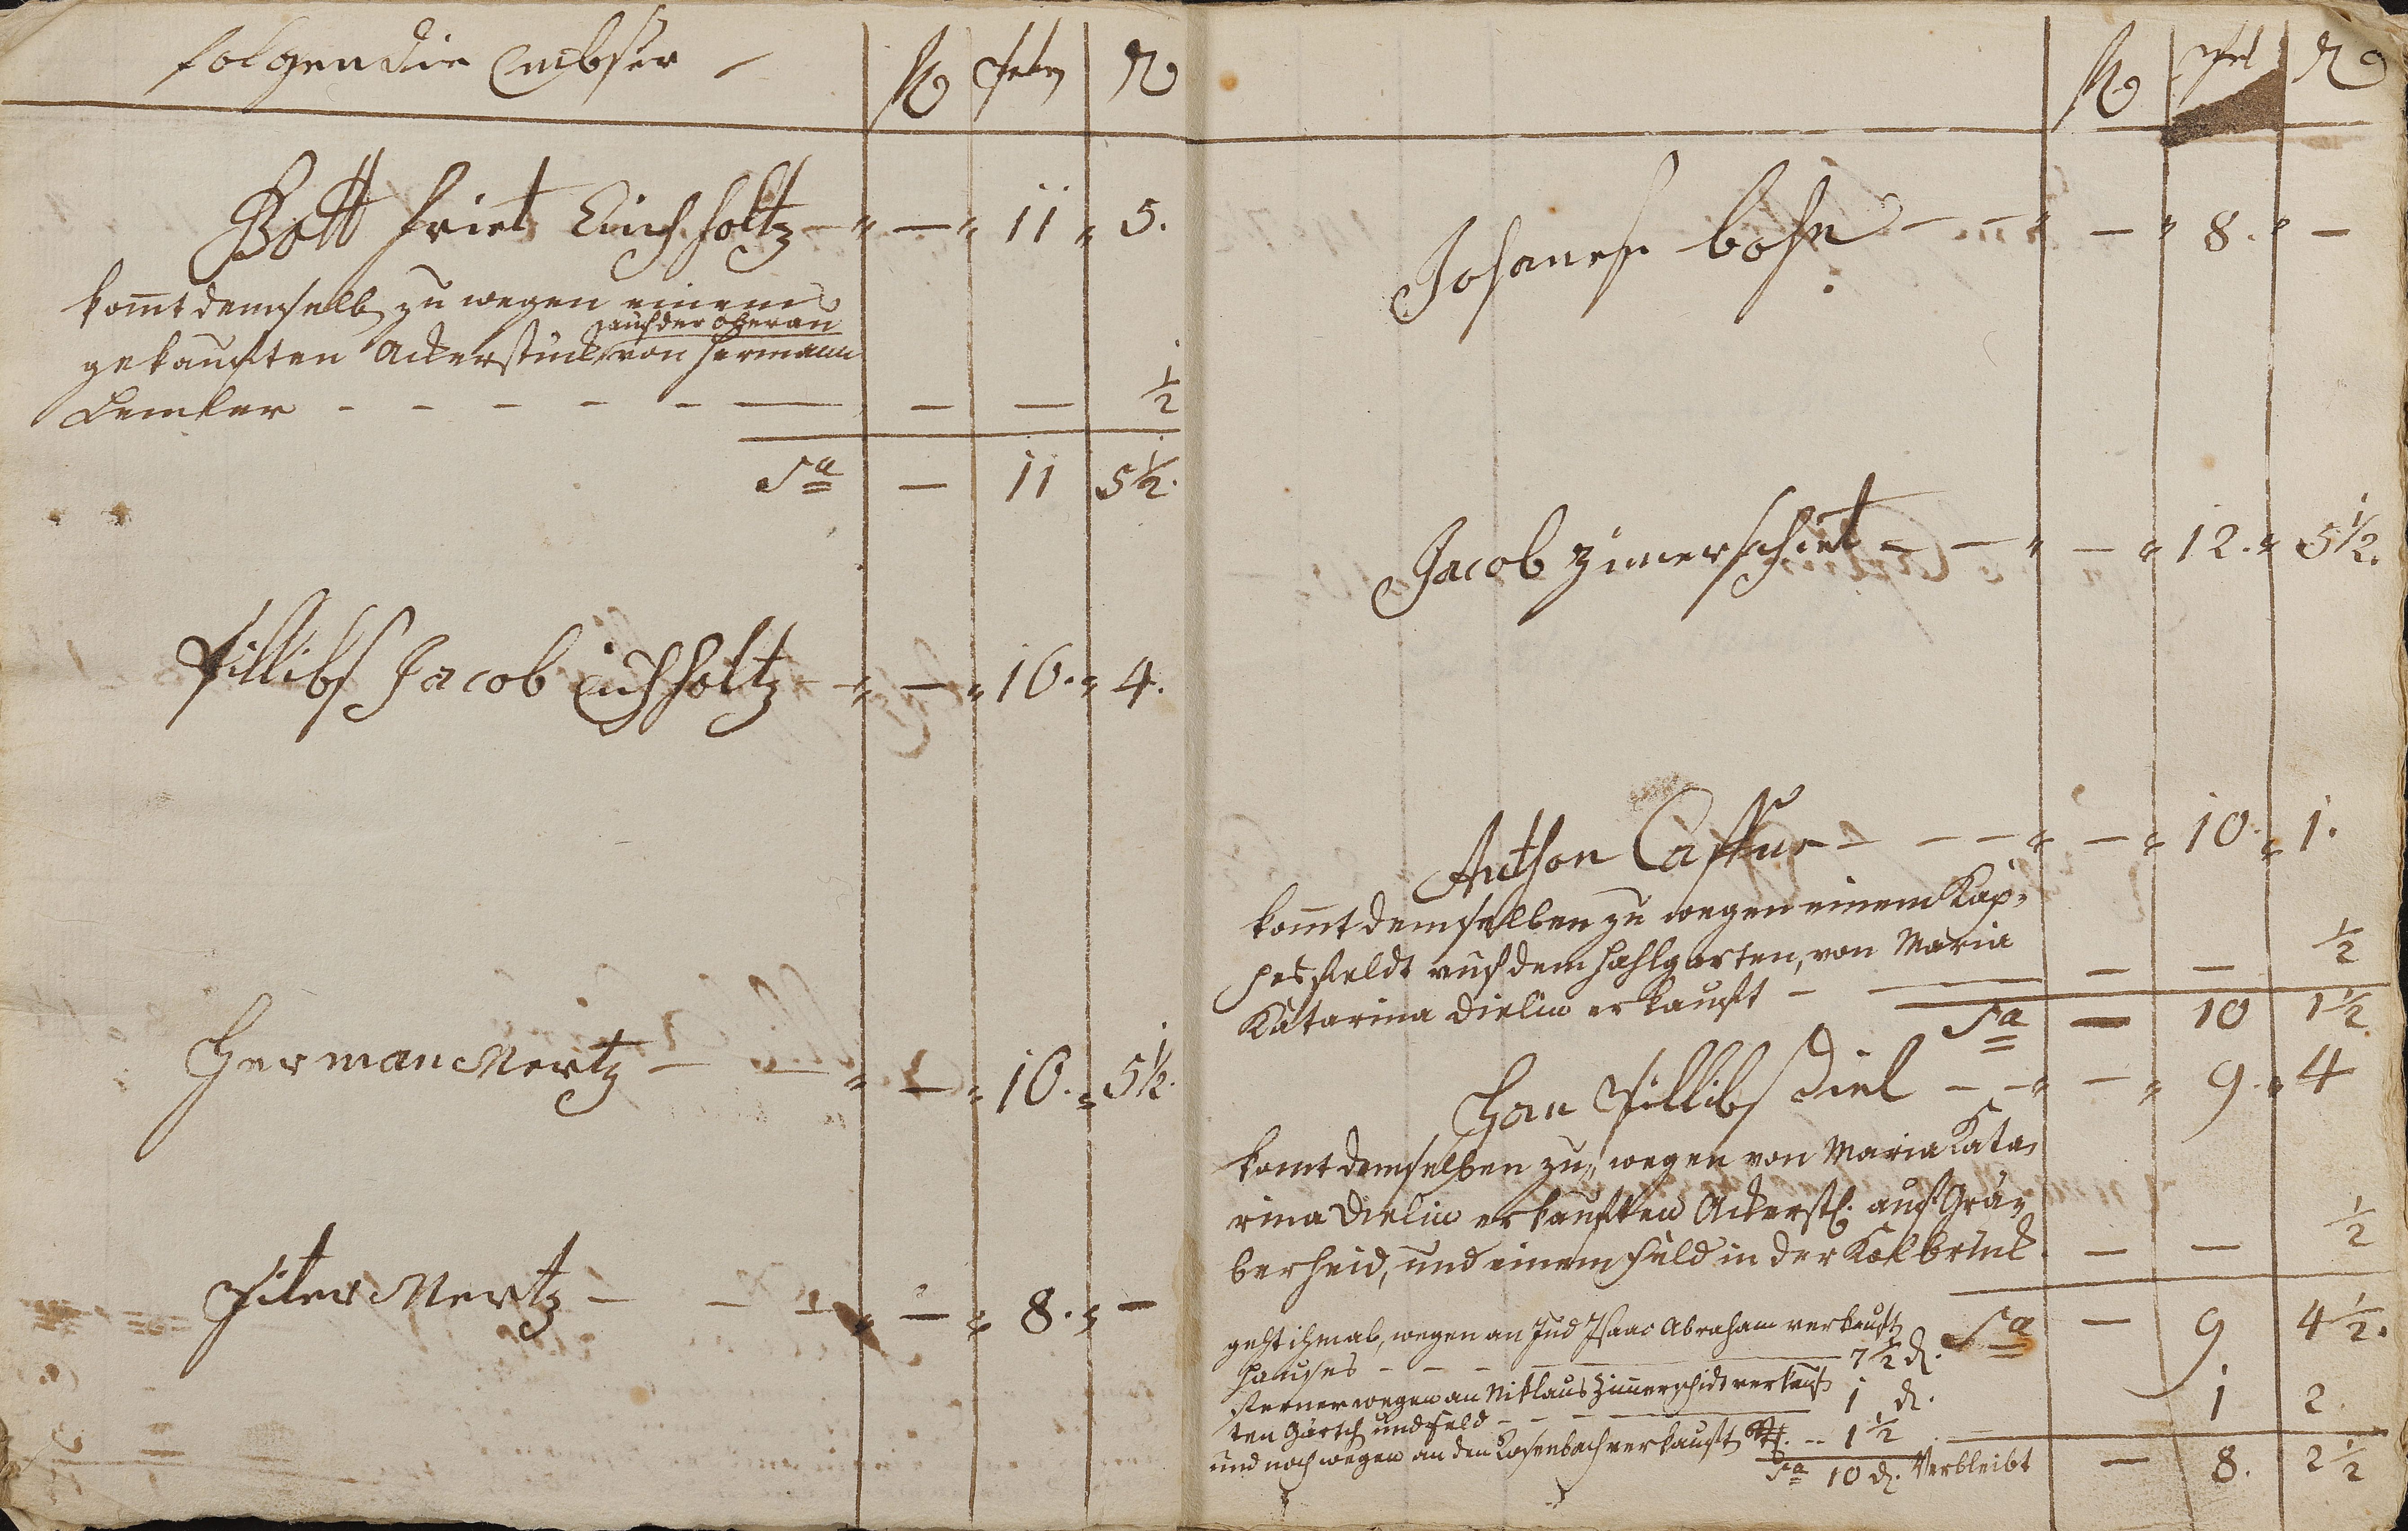 folgen die Embser
fl Peterm₰ ₰
Gott friet Eich holtz - - 11 5.
kom̄t demselb zu wegen einem
auf der oberau
gekauften Ackerstück von Hermann
Demker - - - - - - - - ½
Sa - 11 5½.
Pillibs Jacob Eichholtz - - 10. 4.
Herman Mertz - - 10. 5½.
Piter Mertz - - - 8. -
Johanes bohn - - - 8. -
Jacob Zimerschiet - - - 12. 5½.
Anthon - - - 10. 1.
kom̄t demselben zu wegen einem Kap-
pesfeldt auf dem Hahlgarten, von Maria
Katarina Dielin erkauft - - - - ½
Sa - 10 1½.
Han Pillibs Diel - - - 9. 4
komt demselben zu, wegen von Maria Kata-
rina Dielin erkauften Ackerstk. auf Grä-
berheid, und einem Feld in der Kolbrink - - ½
Sa - 9 4½.
geht ihm ab, wegen an Jud Isaac Abraham verkauft
Hauses - - - 7½ d.
ferner wegen an Niklaus Zimmerschidt verkauf-
ten Gärtch und Feld - - - 1 d. 1 2.
und noch wegen an den Rosenbach verkauft - - 1½
Sa 10 d. Verbleibt - 8. 2½